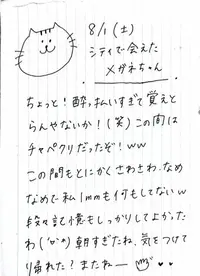 8/1(土)
シティで会えた
メガネちゃん
ちょっと!酔っ払いすぎて覚えと
らんやないか!(笑)この間は
チャパクリだったぞ!ww
この間もとにかくさわさわ、なめ
なめで私1mmも何もしてないw
段々記憶もしっかりしてよかった
わ 朝すぎたね、気をつけて
帰れた?またねー